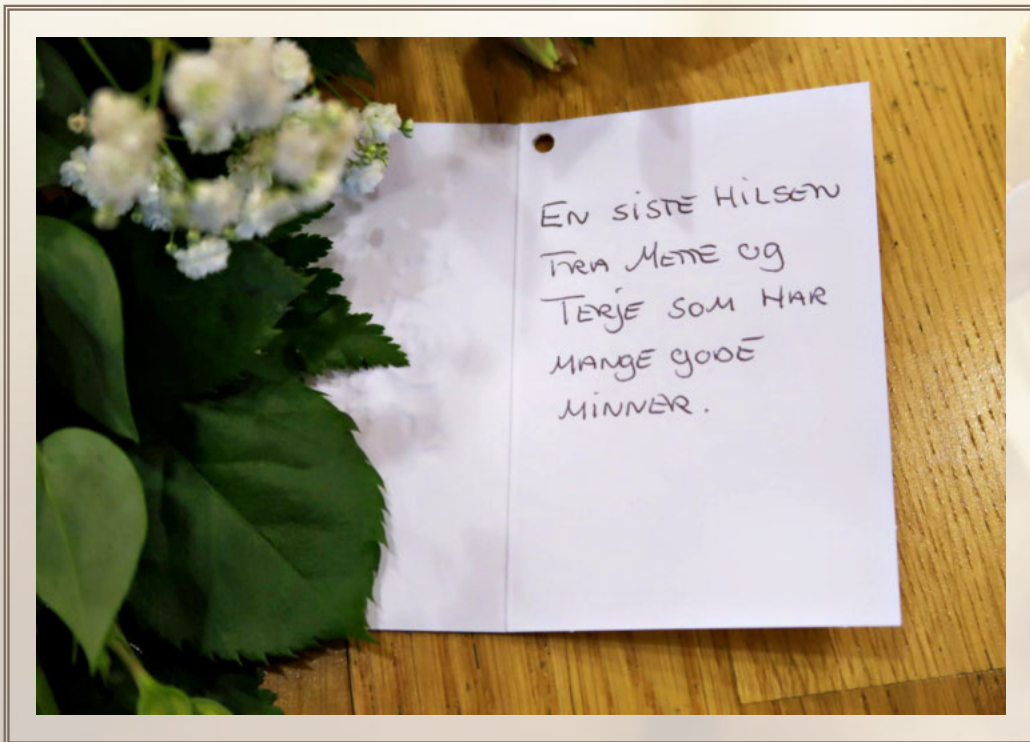 EN SISTE HILSEN
FRA METTE OG
TERJE SOM HAR
MANGE GODE
MINNER.